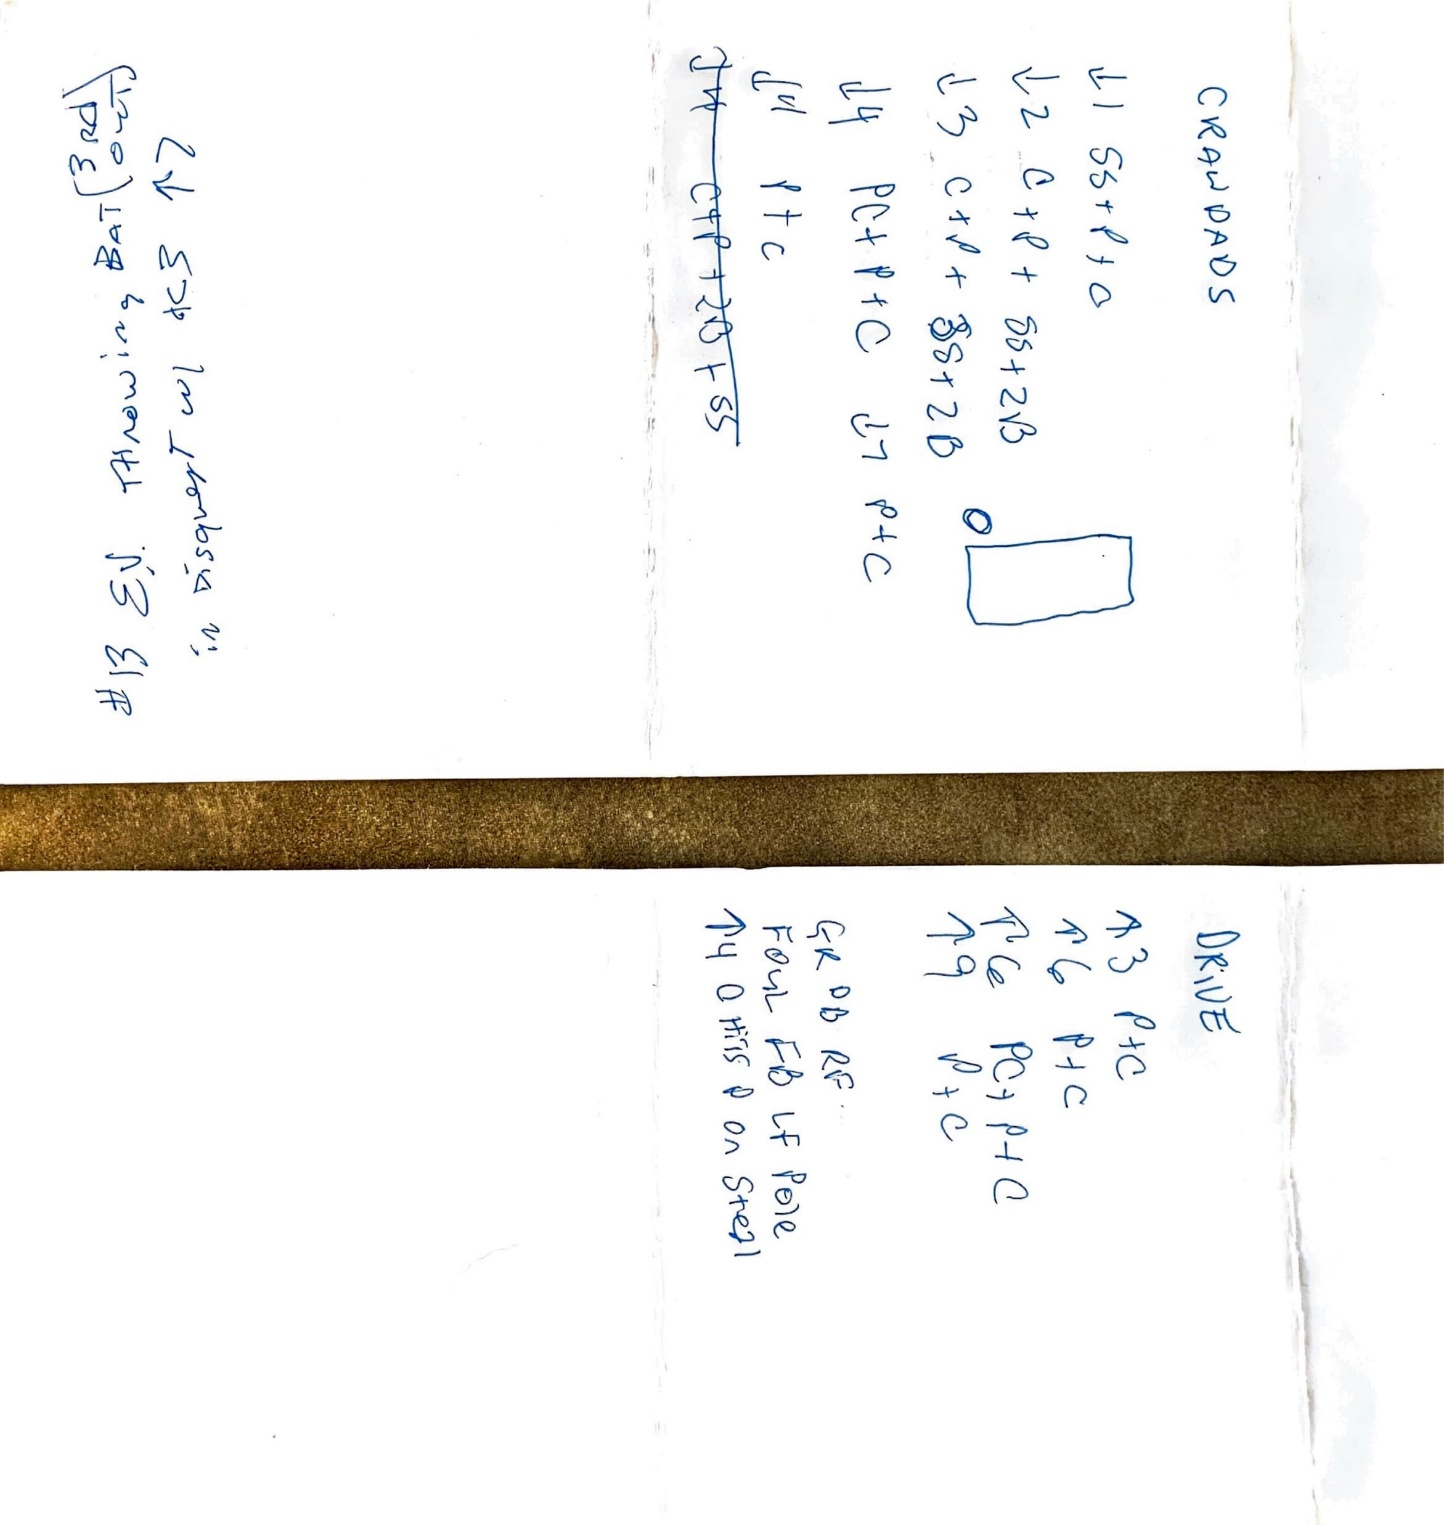 CRAWDADS
↓1 SS+P+C
↓2 C+P+ SS+2B
↓3 C+P+ SS+2B
↓4 PC+P+C ↓7 P+C
↓4 P+C
↓4 C+P+2B+SS
#13 EJ. Throwing BAT (3rd out)
in disgust w/ K's ↑7
DRIVE
↑3 P+C
↑6 P+C
↑6 PC+P+C
↑9 P+C
GR DB RF
Foul FB LF Pole
↑4 0 Hits P on Steal